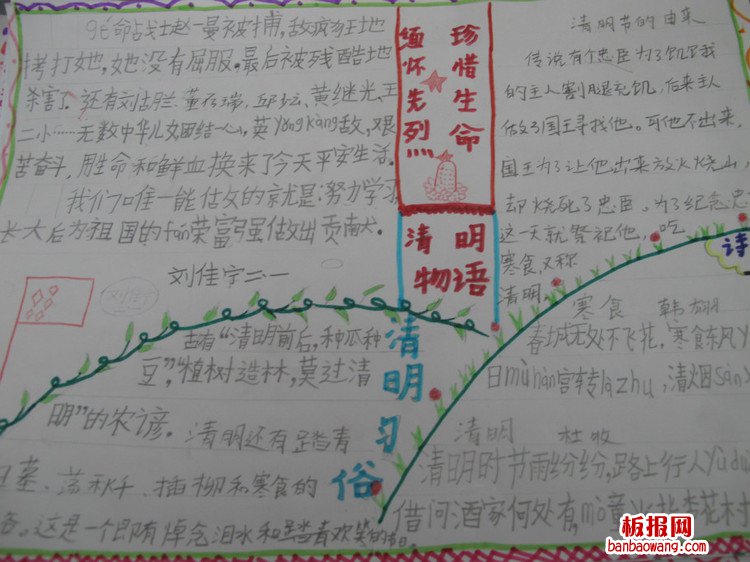 命占战士赵一曼被捕,敌疯狂地
拷打她,她没有屈服。最后被残酷地
杀害了。还有刘胡兰、董存瑞、邱少云、黄继光、王
二小……无数中华儿女团结一心,英yǒngkàng敌,艰
苦奋斗,用生命和鲜血换来了今天平安生活。
我们唯一能做的就是:努力学习
长大后为祖国的fán荣富强做出贡献。
刘佳宁二一
刘佳宁
缅怀先烈
珍惜生命
清明
物语
清明节的由来
传说有个忠臣为了饥饿
的主人割腿充饥,后来主人
做了国王寻找他。可他不出来,
国王为了让他出来放火烧山,
却烧死了忠臣。为了纪念忠
这一天就祭祀他,吃
寒食,又称
清明。
诗
清明习俗
古有“清明前后,种瓜种
豆”,“植树造林,莫过清
明”的农谚。清明还有踏青
墓、荡秋千、插柳和寒食的
俗。这是一个即有悼念泪水和踏青欢笑的节日。
寒食 韩翃
春城无处不飞花,寒食东风
日mù hàn宫转là zhú,清烟sàn
清明 杜牧
清明时节雨纷纷,路上行人yù du
借问酒家何处有,mù童 指杏花村
板报网
banbaowang.com